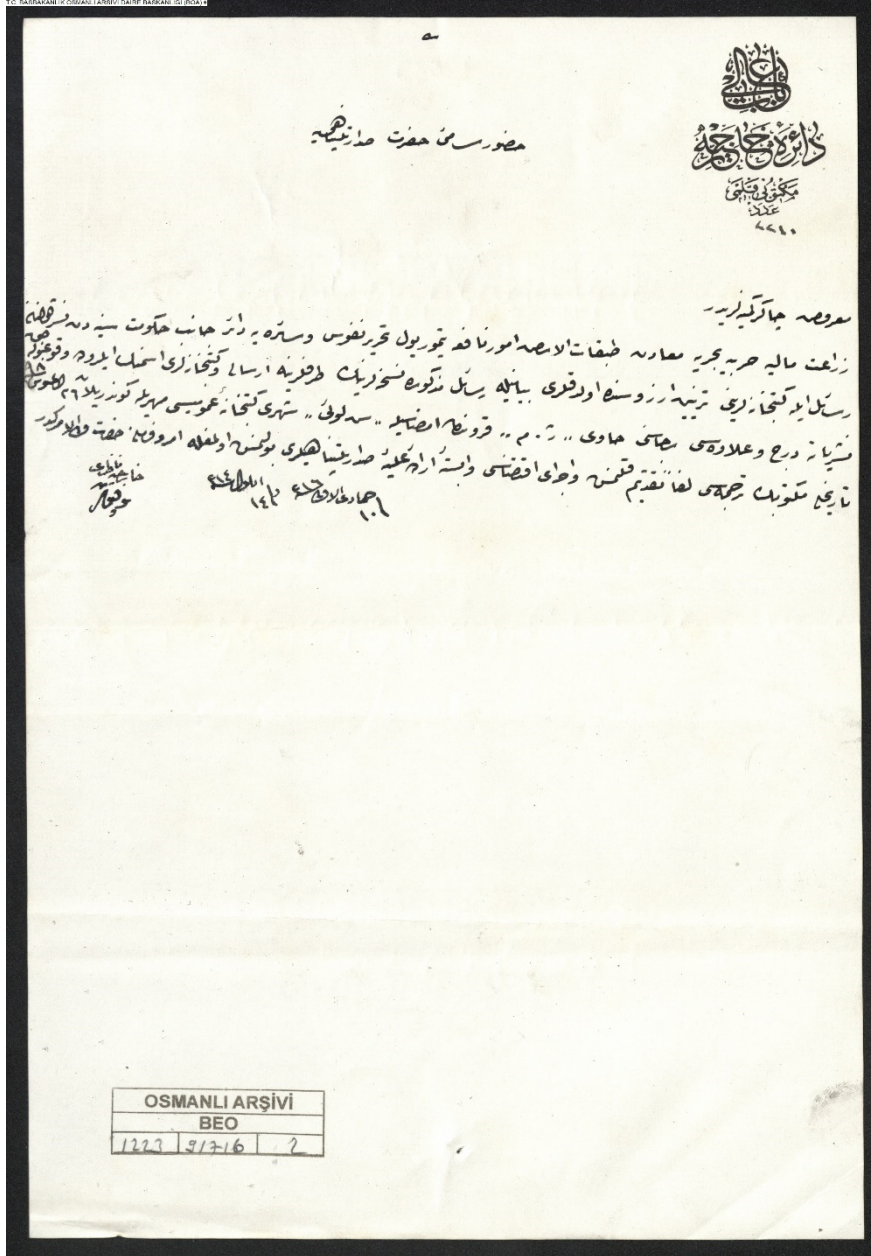 T.C. BAŞBAKANLIK OSMANLI ARŞİVİ DAİRE BAŞKANLIĞI (BOA)
باب عالی
دائرۀ خارجیه
مکتوبی قلمی
عدد
٢٢١٠
حضور سامئ حضرت صدارتپناهی یه
معروض چاکر کمینه لریدر
زراعت مالیه حربیه بحریه معادن طبقات الارض امور نافعه تیمور یول تحریر نفوس و سائره یه دائر جانب حکومت سنیه دن نشر
رسائل ایله کتبخانه لرینی تزیین آرزوسنده اولدقلری بیانیله رسائل مذکوره نسخه لرینك طرفلرینه ارسالی و کتبخانه لری اسمنك
درج و علاوه سی رجاسنی حاوی ,, ,, قروندن امضاسیله ,, سن لوئی ,, شهری کتبخانۀ عمومیسی مهریله کوندریلان ٢٦ اغستوس
تاریخلی مکتوبك ترجمه سی لفا تقدیم قلنمش و اجرای اقتضاسی وابستۀ ارادۀ علیۀ صدارتپناهیلری بولنمش اولمغله امر و فرمان حضرت ولی الامرکدر
فی ١٠ جمادی الاولی ٣١٦ و فی ١٤ ایلول ٣١٤
خارجیه ناظری
توفیق
OSMANLI ARŞİVİ
BEO
1223 91716 2